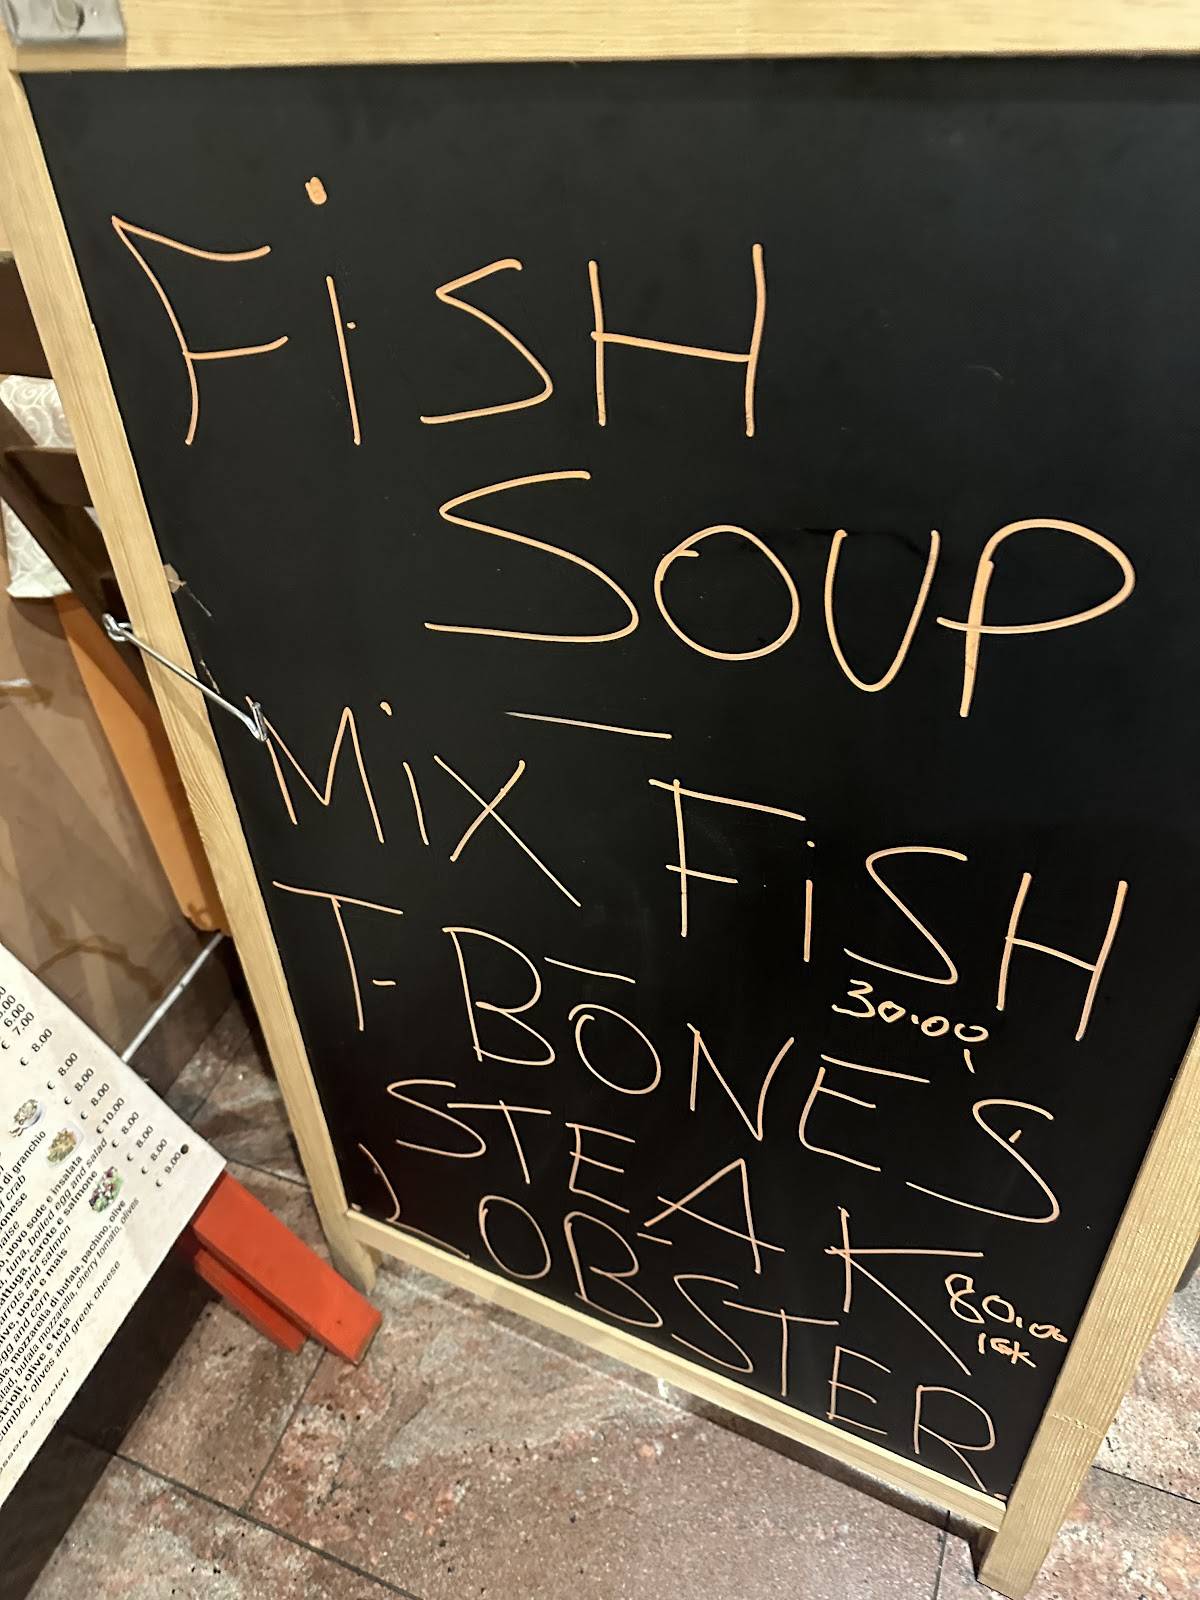 FiSH
SOUP
MiX FiSH
30.00
T-BONE'S
STEAK
80.00
LOBSTER
6.00
€ 7.00
€ 8.00
€ 8.00
€ 8.00
€ 8.00
€ 10.00
€ 8.00
€ 8.00
€ 8.00
€ 9.00
di granchio
of crab
uovo sode e insalata
tuna, boiled egg and salad
carote e salmone
carrots and salmon
uova e mais
egg and corn
mozzarella di bufala, pachino, olive
bufala mozzarella, cherry tomato, olives
olive e feta
olives and greek cheese
essere surgelati